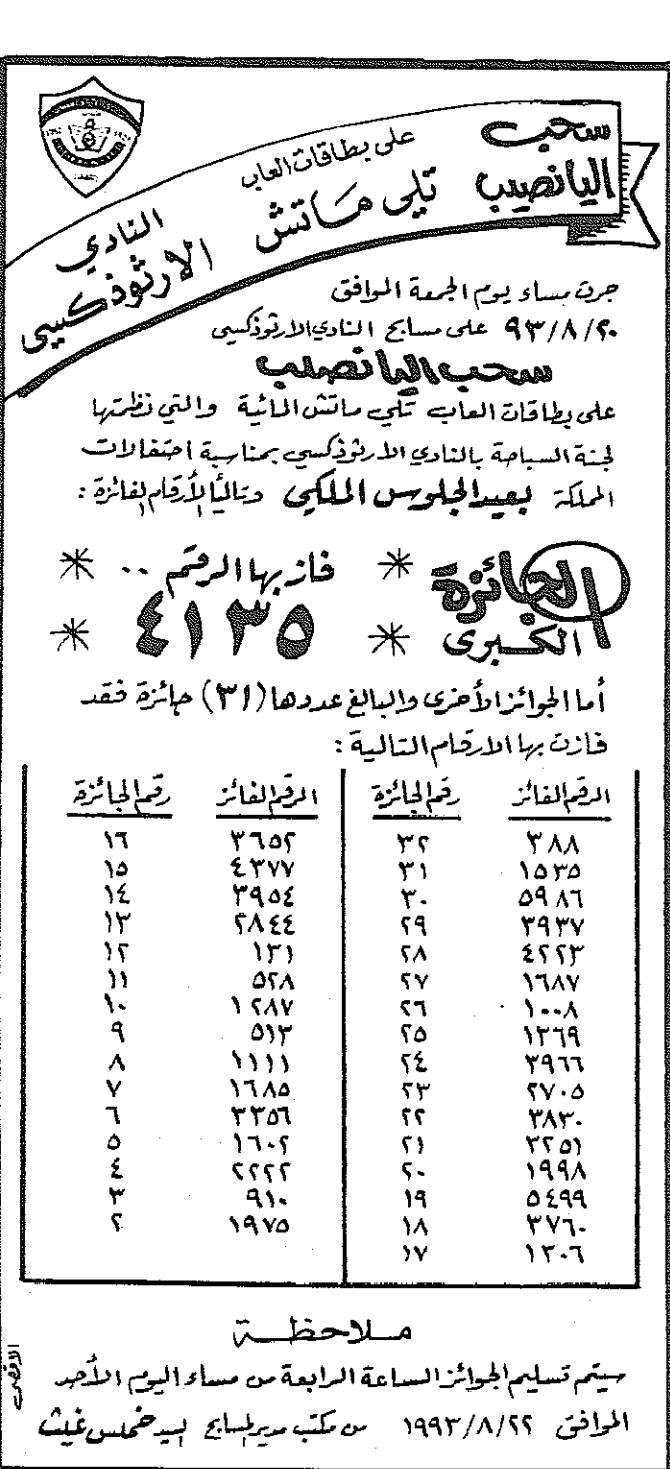 سحب
اليانصيب
على بطاقات العاب
تلي ماتش
النادي
الارثوذكسي
جرت مساء يوم الجمعة الموافق
٩٣/٨/٢٠ على مسابح النادي الارثوذكسي
سحب اليانصيب
على بطاقات العاب تلي ماتش المائية والتي نظمتها
لجنة السباحة بالنادي الارثوذكسي بمناسبة احتفالات
المملكة بعيد الجلوس الملكي وتالياً الأرقام الفائزة :
الجائزة الكبرى
فاز بها الرقم ..
٤١٣٥
أما الجوائز الأخرى والبالغ عددها (٣١) جائزة فقد
فازت بها الارقام التالية :
الرقم الفائز رقم الجائزة الرقم الفائز رقم الجائزة
٣٨٨ ٣٢ ٣٦٥٢ ١٦
١٥٣٥ ٣١ ٤٣٧٧ ١٥
٥٩٨٦ ٣٠ ٣٩٥٤ ١٤
٣٩٣٧ ٢٩ ٢٨٤٤ ١٣
٤٢٢٣ ٢٨ ١٣١ ١٢
١٦٨٧ ٢٧ ٥٢٨ ١١
١٠٠٨ ٢٦ ١٢٨٧ ١٠
١٢٦٩ ٢٥ ٥١٣ ٩
٣٩٦٦ ٢٤ ١١١١ ٨
٢٧٠٥ ٢٣ ١٦٨٥ ٧
٣٨٣٠ ٢٢ ٣٣٥٦ ٦
٣٢٥١ ٢١ ١٦٠٢ ٥
١٩٩٨ ٢٠ ٢٢٢٢ ٤
٥٤٩٩ ١٩ ٩١٠ ٣
٣٧٦٠ ١٨ ١٩٧٥ ٢
١٢٠٦ ١٧
ملاحظة
سيتم تسليم الجوائز الساعة الرابعة من مساء اليوم الأحد
الموافق ١٩٩٣/٨/٢٢ من مكتب مدير المسابح السيد خميس غيث
الاقصى